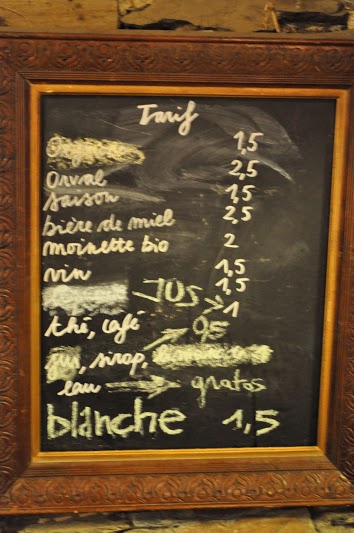 Tarif
1,5
Orval 2,5
saison 1,5
bière de miel 2,5
moinette bio 2
vin 1,5
JUS → 1,5
thé, café 1
sirop, → 0,5
eau → gratos
blanche 1,5